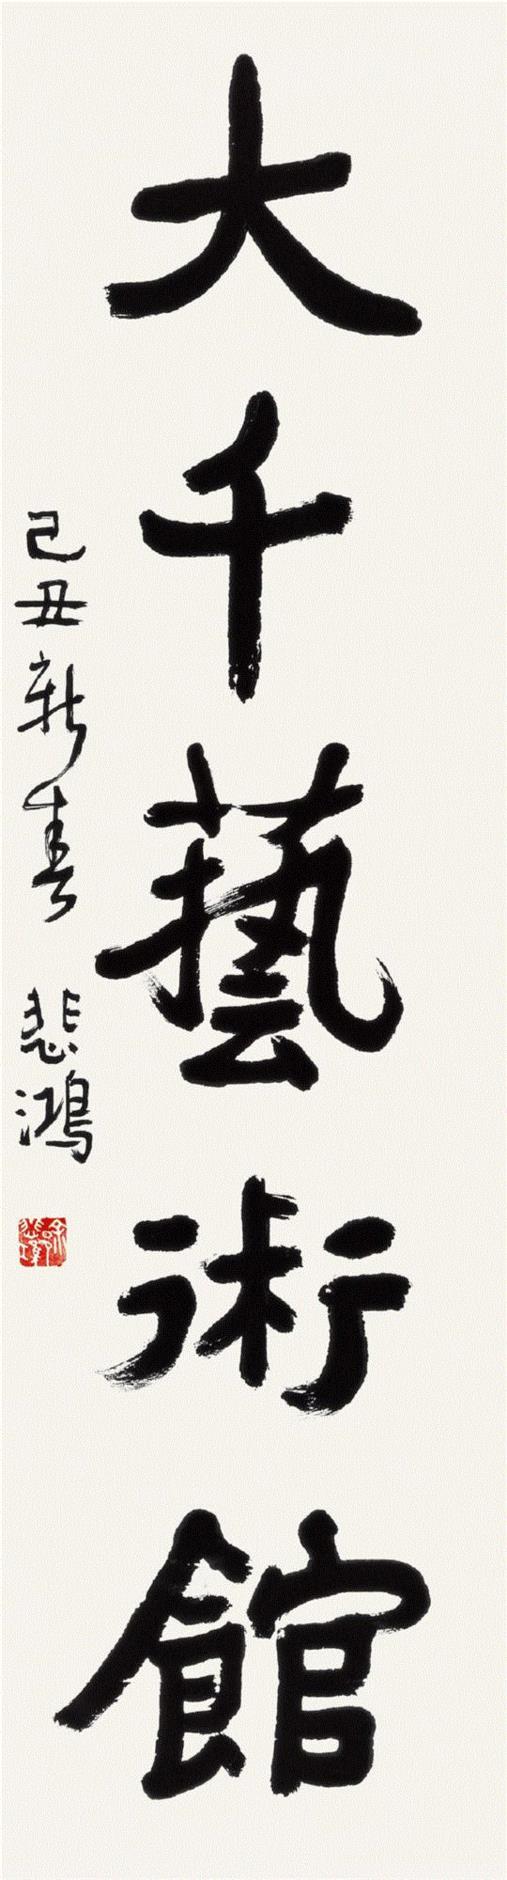 大千藝術館
己丑新春 悲鴻